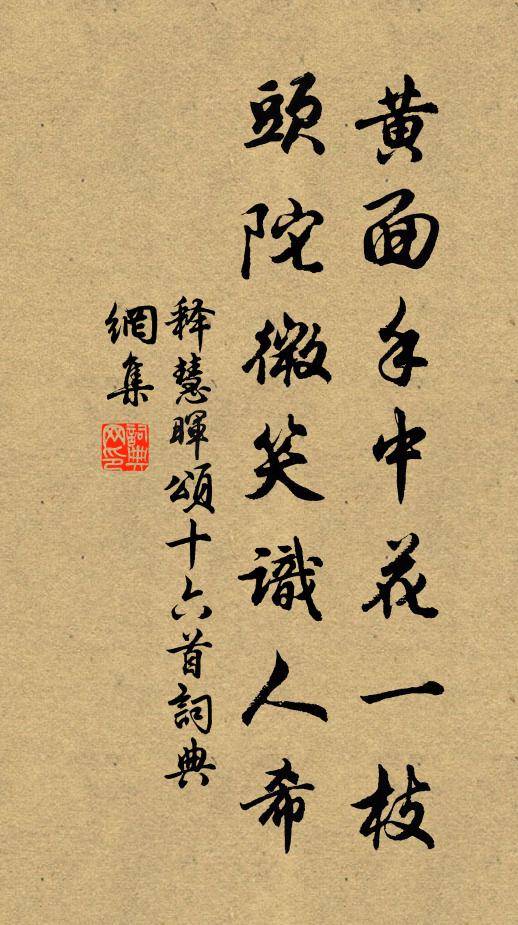 黄面手中花一枝
頭陀微笑識人希
释慧暉頌十六首詞典
網集
詞典
网印